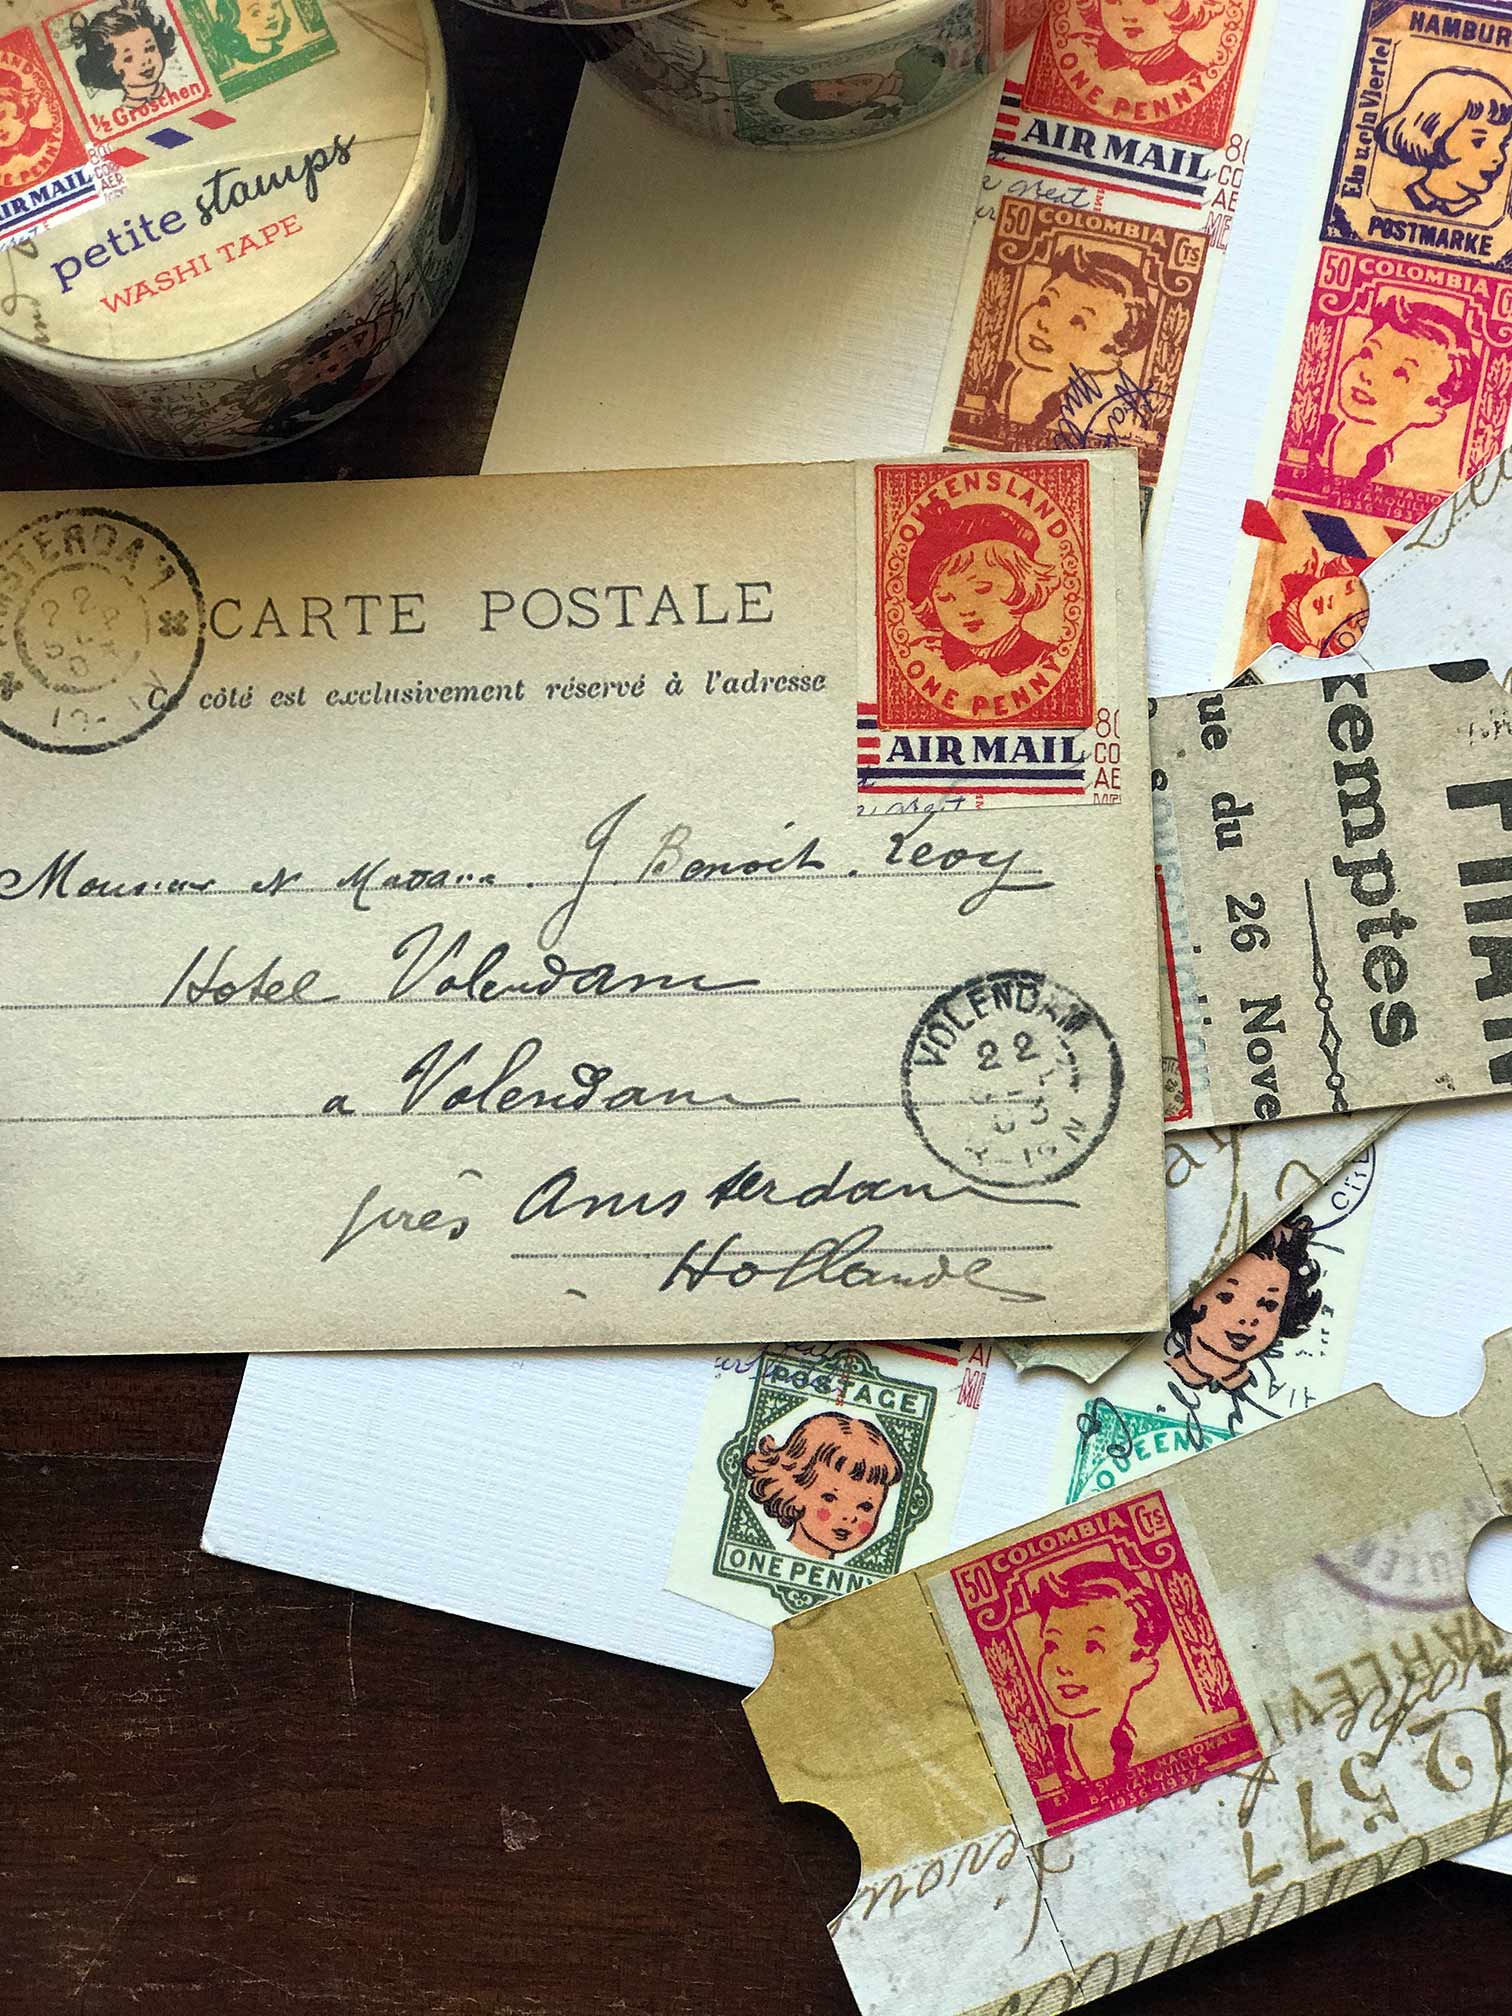 ½ Groschen
AIR MAIL
petite stamps
WASHI TAPE
ONE PENNY
AIR MAIL
great
50 COLOMBIA Cts
HAMBUR
Ein und Viertel
POSTMARKE
50 COLOMBIA
1936-1937
AMSTERDAM
22
CARTE POSTALE
Ce côté est exclusivement réservé à l'adresse
QUEENSLAND
ONE PENNY
AIR MAIL
80
CO
AE
great
Monsieur et Madame J. Benoit. Levy
Hotel Volendam
a Volendam
près Amsterdam
Hollande
VOLENDAM
22
03
ue du 26 Nove
xemptes
POSTAGE
ONE PENNY
QUEEN
50 COLOMBIA Cts
NACIONAL
BARRANQUILLA
1936-1937
577